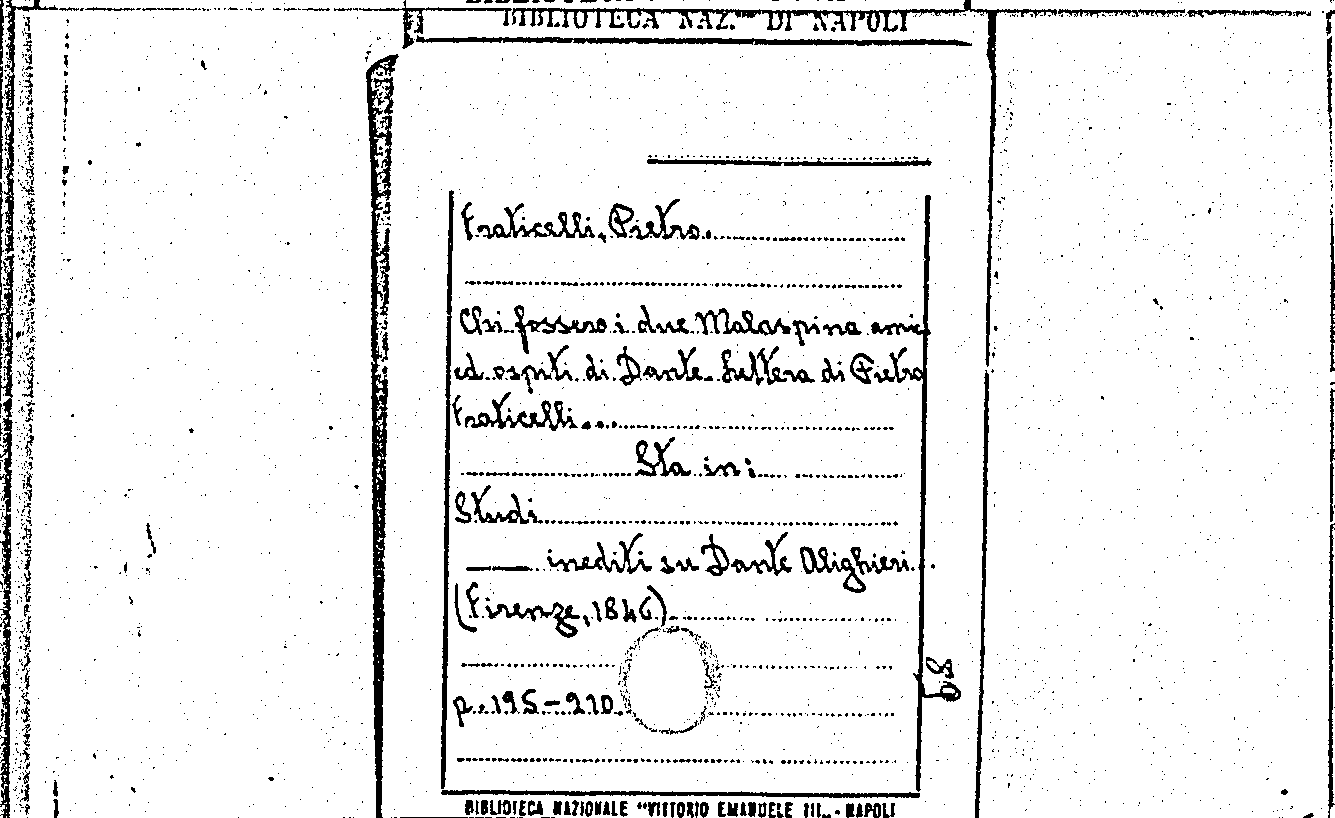 BIBLIOTECA NAZ. DI NAPOLI
Fraticelli, Pietro.
Chi fossero i due Malaspina amici
ed ospiti di Dante. Lettera di Pietro
Fraticelli...
Sta in:
Studi
—— inediti su Dante Alighieri...
(Firenze, 1846)
p. 195-210.
BIBLIOTECA NAZIONALE "VITTORIO EMANUELE III" - NAPOLI